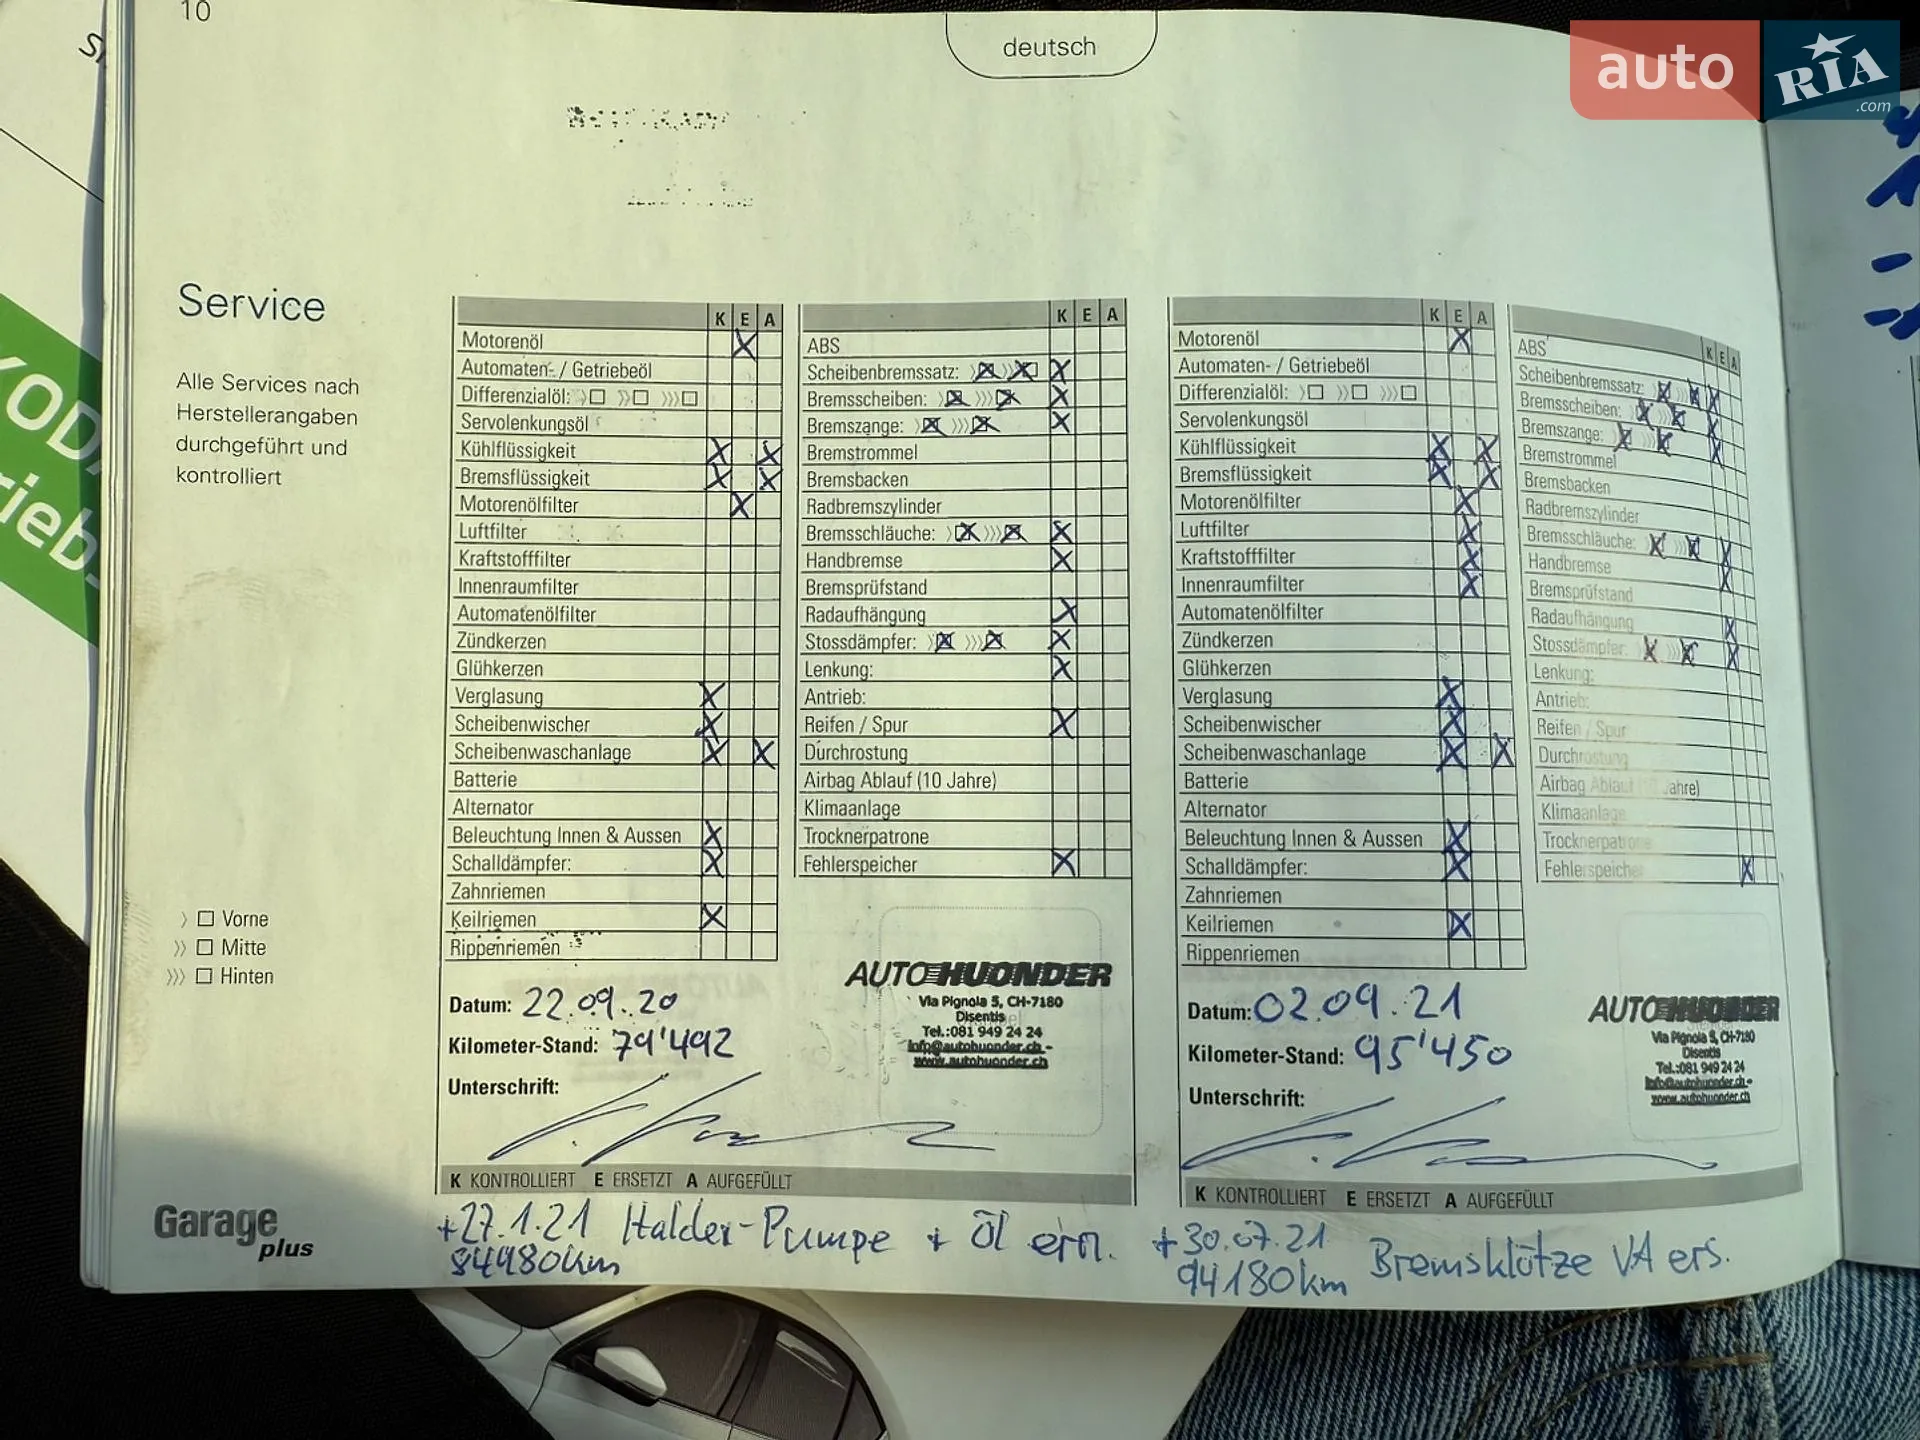 10
deutsch
auto RIA .com
Service
Alle Services nach
Herstellerangaben
durchgeführt und
kontrolliert
> Vorne
>> Mitte
>>> Hinten
Garage
plus
K E A
Motorenöl X
Automaten- / Getriebeöl
Differenzialöl: > □ >> □ >>> □
Servolenkungsöl
Kühlflüssigkeit X X
Bremsflüssigkeit X X
Motorenölfilter X
Luftfilter
Kraftstofffilter
Innenraumfilter
Automatenölfilter
Zündkerzen
Glühkerzen
Verglasung X
Scheibenwischer X
Scheibenwaschanlage X X
Batterie
Alternator
Beleuchtung Innen & Aussen X
Schalldämpfer: X
Zahnriemen
Keilriemen X
Rippenriemen
K E A
ABS
Scheibenbremssatz: > X >>> X X
Bremsscheiben: > X >>> X X
Bremszange: > X >>> X X
Bremstrommel
Bremsbacken
Radbremszylinder
Bremsschläuche: > X >>> X X
Handbremse X
Bremsprüfstand
Radaufhängung X
Stossdämpfer: > X >>> X X
Lenkung: X
Antrieb:
Reifen / Spur X
Durchrostung
Airbag Ablauf (10 Jahre)
Klimaanlage
Trocknerpatrone
Fehlerspeicher X
Datum: 22.09.20
Kilometer-Stand: 79'492
Unterschrift:
AUTO HUONDER
Via Pignola 5, CH-7180
Disentis
Tel.:081 949 24 24
info@autohuonder.ch -
www.autohuonder.ch
K KONTROLLIERT E ERSETZT A AUFGEFÜLLT
K E A
Motorenöl X
Automaten- / Getriebeöl
Differenzialöl: > □ >> □ >>> □
Servolenkungsöl
Kühlflüssigkeit X X
Bremsflüssigkeit X X
Motorenölfilter X
Luftfilter X
Kraftstofffilter X
Innenraumfilter X
Automatenölfilter
Zündkerzen
Glühkerzen
Verglasung X
Scheibenwischer X
Scheibenwaschanlage X X
Batterie
Alternator
Beleuchtung Innen & Aussen X
Schalldämpfer: X
Zahnriemen
Keilriemen X
Rippenriemen
K E A
ABS
Scheibenbremssatz: X >>> X X
Bremsscheiben: X >>> X X
Bremszange: X >>> X X
Bremstrommel
Bremsbacken
Radbremszylinder
Bremsschläuche: X >>> X X
Handbremse X
Bremsprüfstand
Radaufhängung X
Stossdämpfer: X >>> X X
Lenkung:
Antrieb:
Reifen / Spur
Durchrostung
Airbag Ablauf (10 Jahre)
Klimaanlage
Trocknerpatrone
Fehlerspeicher X
Datum: 02.09.21
Kilometer-Stand: 95'450
Unterschrift:
AUTO HUONDER
Via Pignola 5, CH-7180
Disentis
Tel.:081 949 24 24
info@autohuonder.ch -
www.autohuonder.ch
K KONTROLLIERT E ERSETZT A AUFGEFÜLLT
+27.1.21 Halder-Pumpe + Öl ern.
84980km
+30.07.21 Bremsklötze VA ers.
94180km